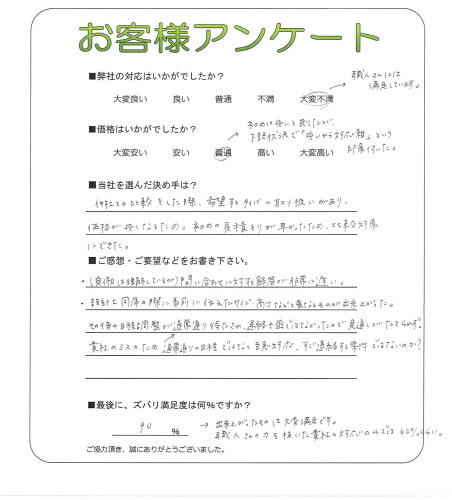 お客様アンケート
■弊社の対応はいかがでしたか?
大変良い 良い 普通 不満 大変不満
→ 職人さんには
満足しています。
■価格はいかがでしたか?
初めは安いと思ったが、
下記状況で「安いから対応が雑」という
印象付いた。
大変安い 安い 普通 高い 大変高い
■当社を選んだ決め手は?
他社との比較をした際、希望するタイプの取り扱いがあり、
価格が安くなるため。初めの見積もりが早かったため、比較対象
にできた。
■ご感想・ご要望などをお書き下さい。
・(夜は理解しているが)問い合わせに対する回答が非常に遅い。
・設計士同席の際に事前に伝えたサイズ・高さなどと異なるものが出来上がった。
その後の日程調整が通常通り待たされ、連絡も密ではなかったので見通しがたてられず。
貴社のミスのため通常通りの日程ではなく至急対応、すぐ連絡する案件ではないのか?
■最後に、ズバリ満足度は何%ですか?
90 %
→ 出来上がったものには大変満足です。
職人さんの力を抜いた貴社の対応のみでは60%くらい。
ご協力頂き、誠にありがとうございました。